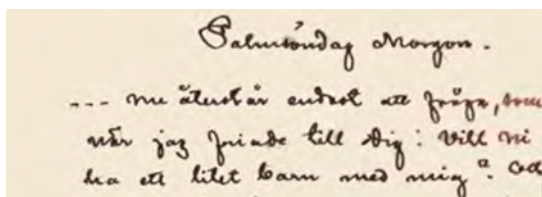 Palmsöndag Morgon.
--- nu återstår endast att fråga, som
når jag friade till Dig: Vill Ni
ha ett litet barn med mig?